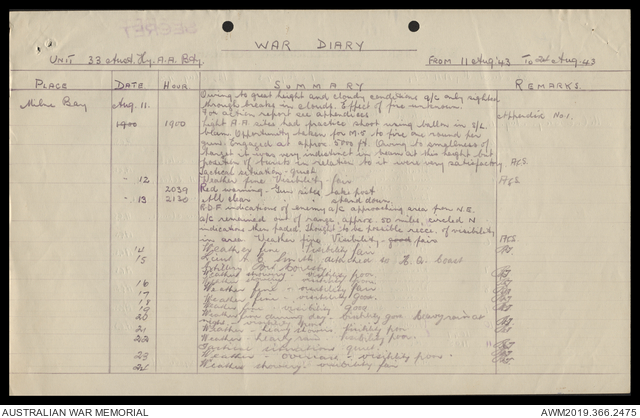 SECRET
WAR DIARY
UNIT 33 Aust. Hy. A.A. Bty. FROM 11 Aug '43 TO 24 Aug. 43
PLACE DATE HOUR SUMMARY REMARKS
Milne Bay Aug. 11. Owing to great height and cloudy conditions a/c only sighted
through breaks in clouds. Effect of fire unknown.
For action report see appendices Appendix No.1.
1900 1900 Light A.A. sites had practice shoot using ballon in S/L
beam. Opportunity taken for M.S to fire one round per
gun. Engaged at approx. 5000 ft. Owing to smallness of
target it was very indistinct in beam at this height but
position of bursts in relation to it were very satisfactory
Tactical situation - quiet
" 12 Weather fine. Visibility - fair
2039 Red warning - Gun sites take post
" 13 2120 All clear " " stand down.
R.D.F indications of enemy a/c approaching area from N.E.
a/c remained out of range, approx. 50 miles, circled N
indications then faded. Thought to be possible recce. of visibility
in area. Weather fine, Visibility, good fair
14 Weather fine. Visibility fair
15 Lieut Smith detached to H.Q. Coast
Artillery Port Moresby
Weather showery - visibility poor
16 Weather showery - visibility poor
17 Weather fine - visibility fair
18 Weather fine - visibility good.
19 Weather fine - visibility good
20 Weather fine during day - visibility good heavy rain at
night - visibility
21 Weather - heavy showers visibility poor
22 Weather - heavy rain - visibility poor.
Tactical situation quiet.
23 Weather - overcast - visibility poor.
24 Weather showery - visibility fair
AUSTRALIAN WAR MEMORIAL AWM2019.366.2475